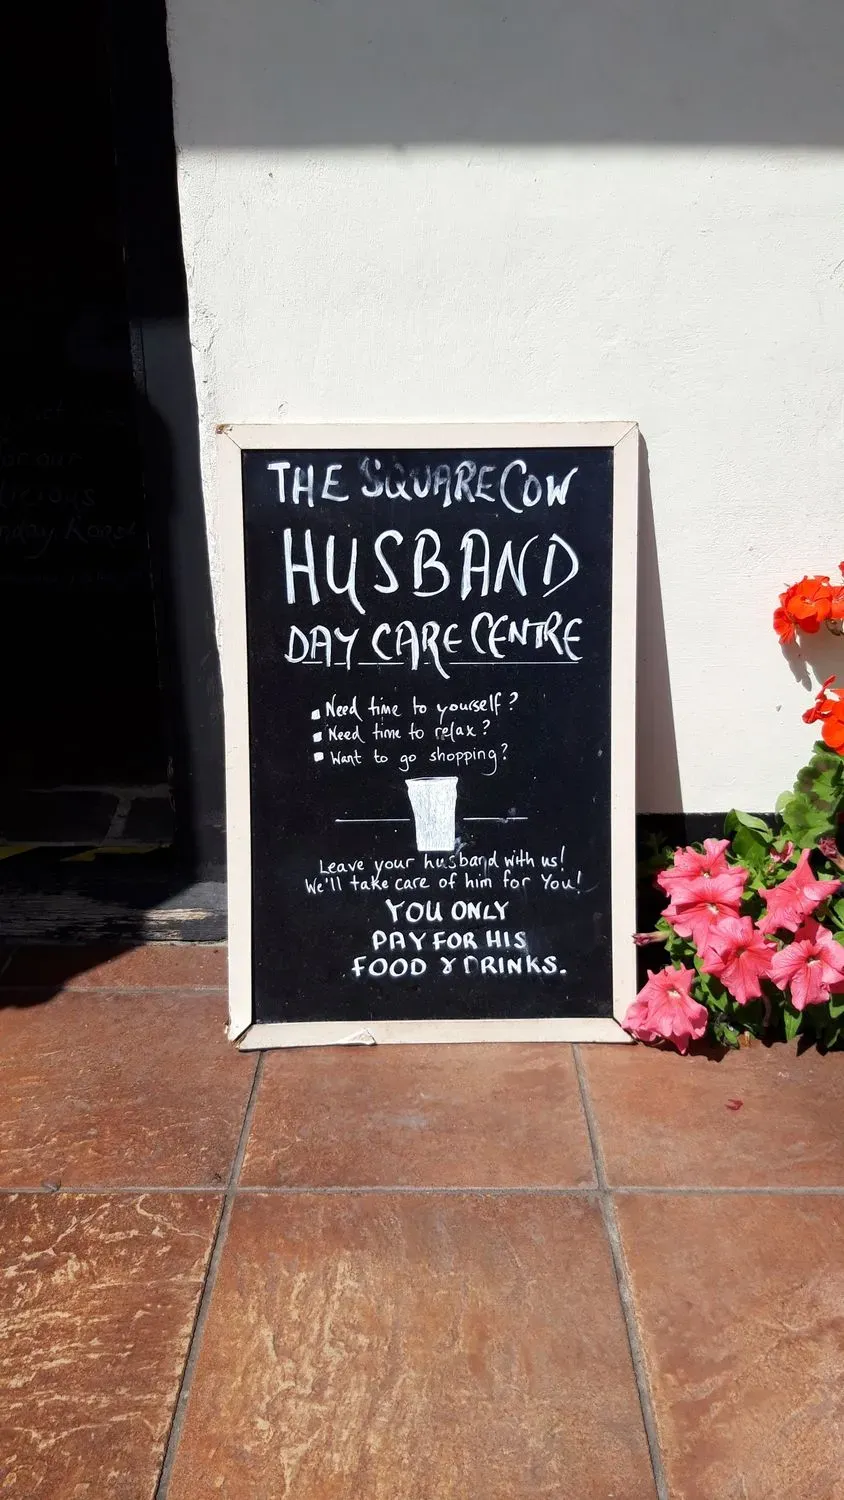 THE SQUARE COW
HUSBAND
DAY CARE CENTRE
Need time to yourself?
Need time to relax?
Want to go shopping?
Leave your husband with us!
We'll take care of him for You!
YOU ONLY
PAY FOR HIS
FOOD & DRINKS.